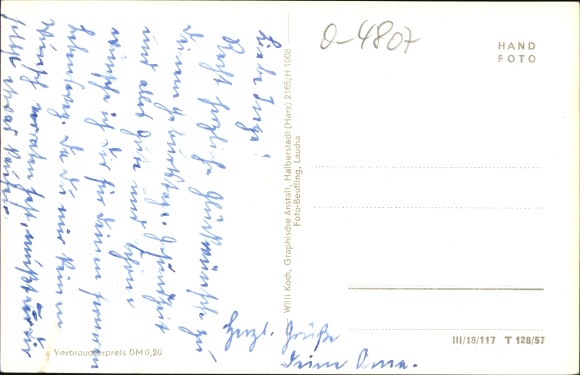 Liebe Inga!
Recht herzliche Glückwünsche zu
Deinem Geburtstag. Gesundheit
und alles Gute und Schöne
wünsche ich Dir für Deinen ferneren
Lebensweg. Da Du mir keinen
Wunsch verraten hast, mußt Du Dir
selbst etwas kaufen.
Herzl. Grüße
Deine Oma.
Verbraucherpreis DM 0,20
Willi Koch, Graphische Anstalt, Halberstadt (Harz) 2165/H 1008
Foto-Beufling, Laucha
O-4807
HAND
FOTO
III/18/117 T 128/57